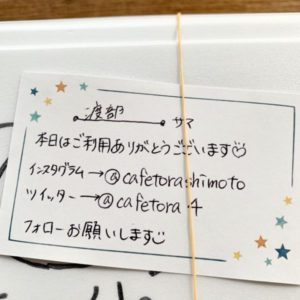 渡部 サマ
本日はご利用ありがとうございます
インスタグラム→@cafetorashimoto
ツイッター→@cafetora_4
フォローお願いします